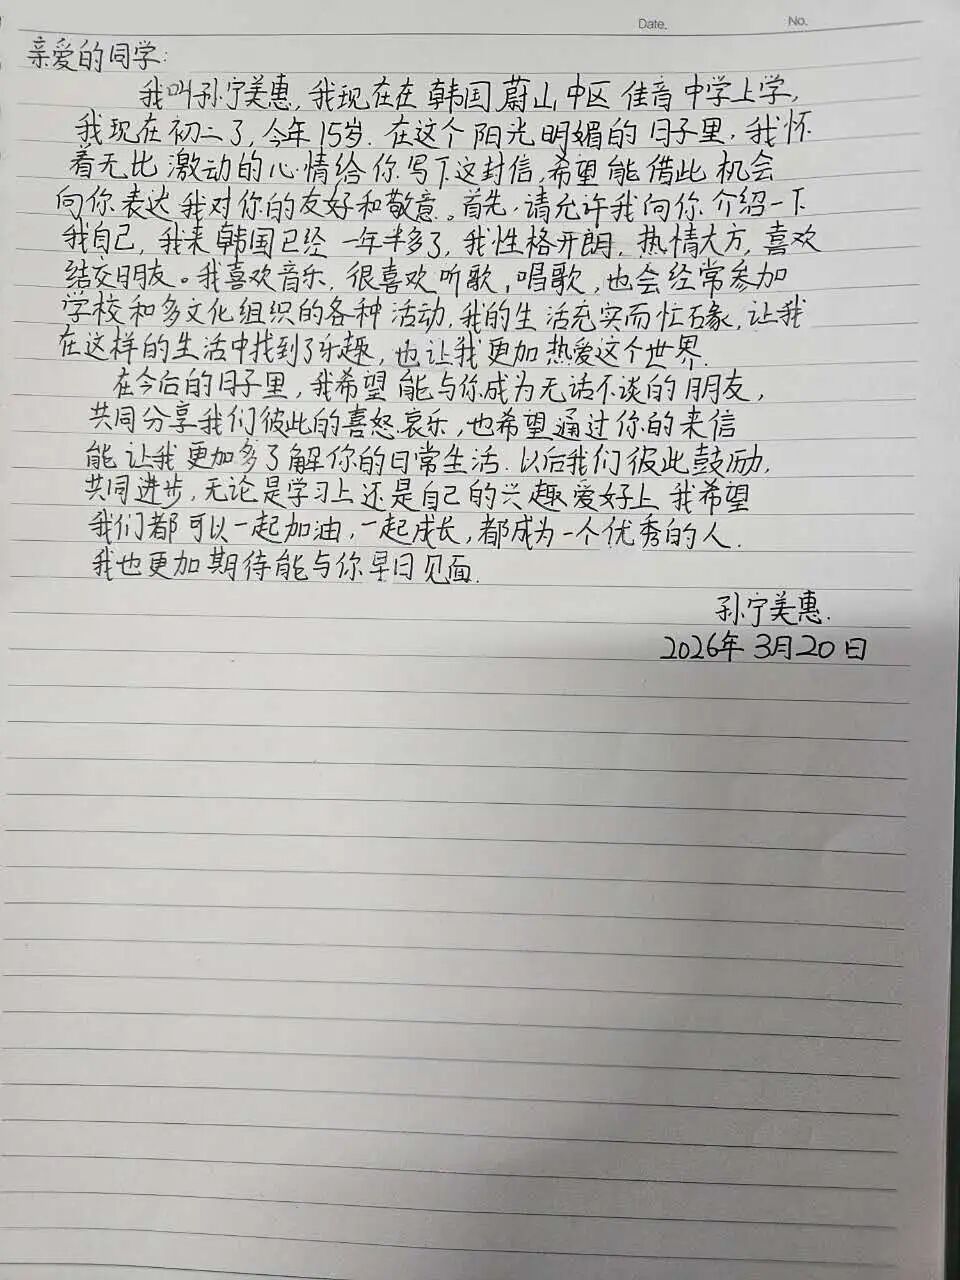 Date.
No.
亲爱的同学:
我叫孙宁美惠,我现在在韩国蔚山中区佳音中学上学,
我现在初二了,今年15岁.在这个阳光明媚的日子里,我怀
着无比激动的心情给你写下这封信,希望能借此机会
向你表达我对你的友好和敬意。首先,请允许我向你介绍一下
我自己,我来韩国已经一年半多了,我性格开朗,热情大方,喜欢
结交朋友。我喜欢音乐,很喜欢听歌,唱歌,也会经常参加
学校和多文化组织的各种活动,我的生活充实而忙碌,让我
在这样的生活中找到了乐趣,也让我更加热爱这个世界.
在今后的日子里,我希望能与你成为无话不谈的朋友,
共同分享我们彼此的喜怒哀乐,也希望通过你的来信
能让我更加多了解你的日常生活.以后我们彼此鼓励,
共同进步,无论是学习上还是自己的兴趣爱好上,我希望
我们都可以一起加油,一起成长,都成为一个优秀的人.
我也更加期待能与你早日见面.
孙宁美惠.
2026年3月20日